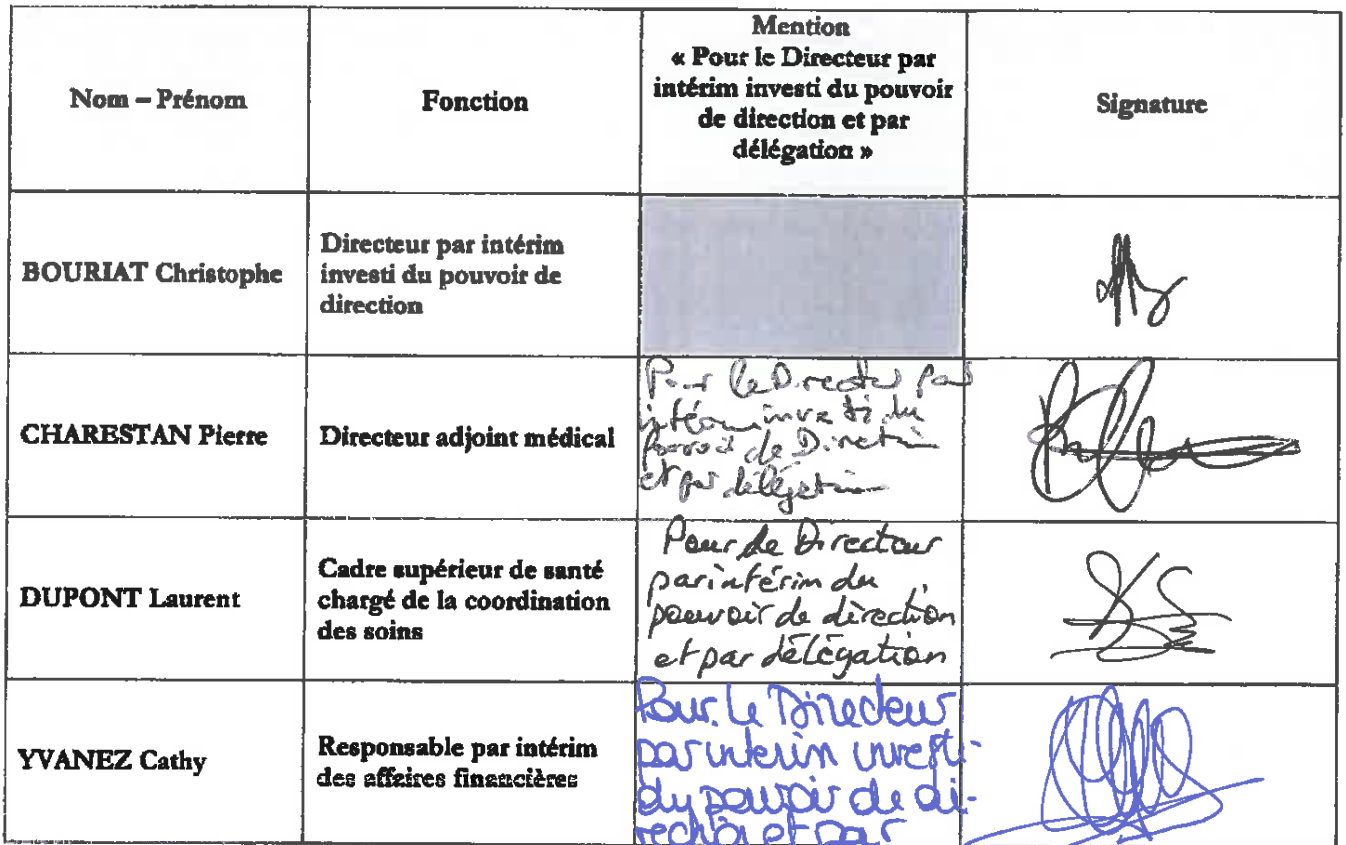 Nom – Prénom
Fonction
Mention
« Pour le Directeur par
intérim investi du pouvoir
de direction et par
délégation »
Signature
BOURIAT Christophe
Directeur par intérim
investi du pouvoir de
direction
CHARESTAN Pierre
Directeur adjoint médical
Pour le Directeur par
intérim investi du
pouvoir de Direction
et par délégation
DUPONT Laurent
Cadre supérieur de santé
chargé de la coordination
des soins
Pour le Directeur
par intérim du
pouvoir de direction
et par délégation
YVANEZ Cathy
Responsable par intérim
des affaires financières
Pour le Directeur
par interim investi
du pouvoir de di-
rection et par